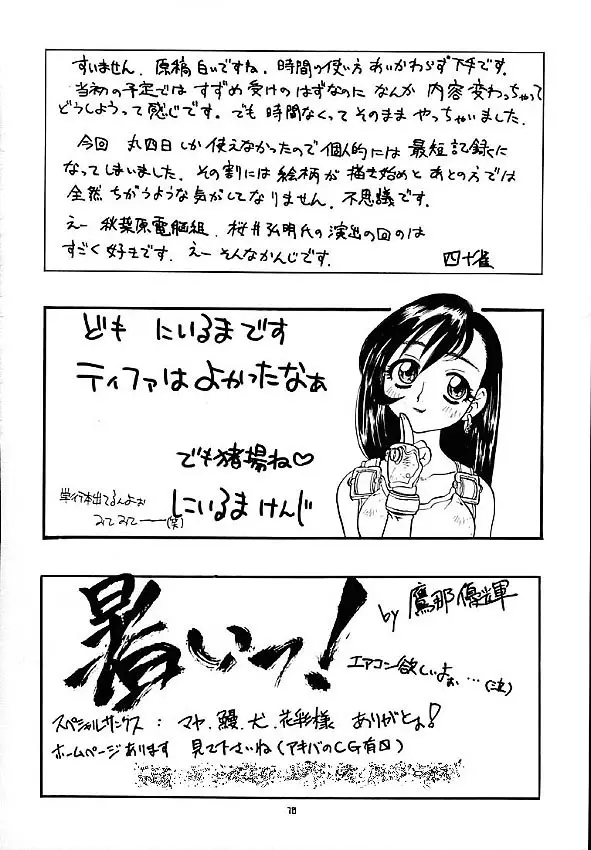 すいません、原稿白いですね、時間の使い方あいかわらず下手です。
当初の予定では すずめ受けのはずなのに なんか 内容変わっちゃって
どうしようって感じです。でも時間なくって そのまま やっちゃいました。
今回 丸四日しか使えなかったので個人的には 最短記録に
なってしまいました。その割には絵柄が 描き始めと あとの方では
全然 ちがうような気がしてなりません。不思議です。
えー 秋葉原電脳組、桜井弘明氏の演出の回のは
すごく好きです。えー そんなかんじです。
四十雀
ども にいるまです
ティファは よかったなぁ
でも猪場ね♡
単行本出てるんよぉ
みてみてーー(笑)
にいるまけんじ
暑いっ!
by 鷹那優輝
エアコン欲しいよぉ…(泣)
スペシャルサンクス: マヤ、鰻、犬、花彩様 ありがとぉ!
ホームページあります 見て下さいね(アキバのCG有り)
78